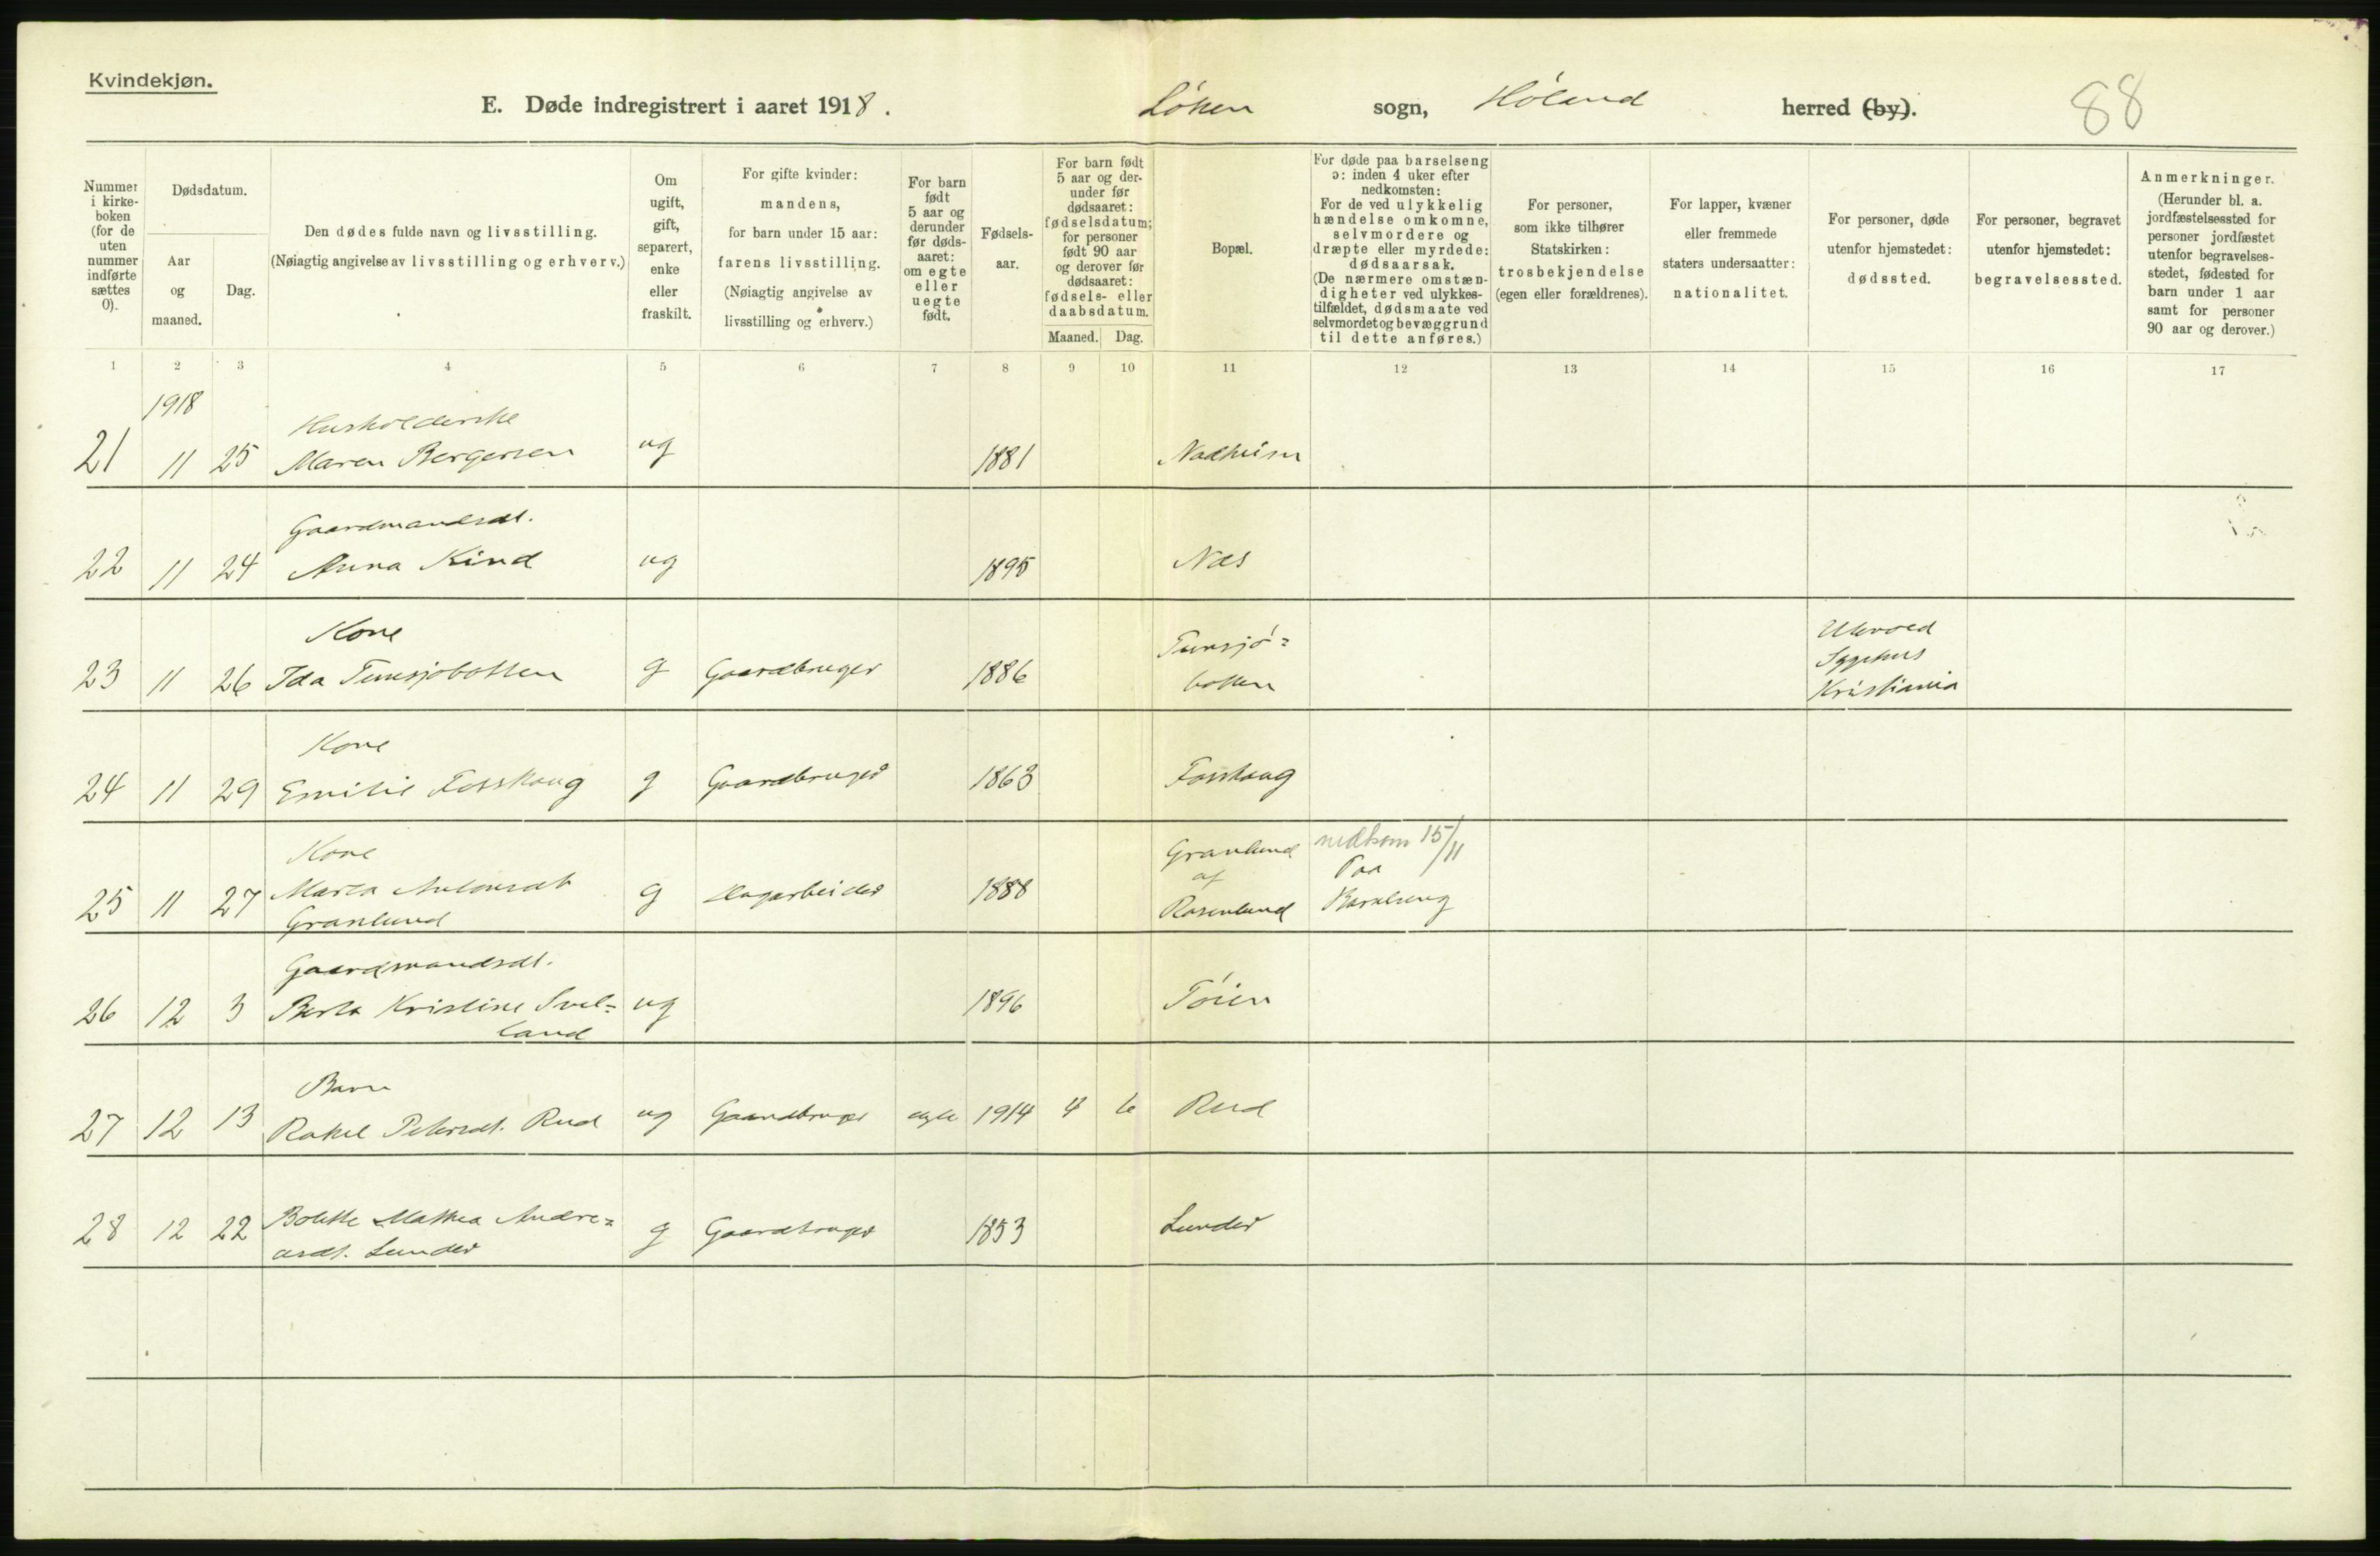 Kvindekjøn.
E. Døde indregistrert i aaret 1918. Løken sogn, Høland herred (by). 88
Nummer i kirkeboken (for de uten nummer indførte sættes 0).
Dødsdatum.
Aar og maaned.
Dag.
Den dødes fulde navn og livsstilling.
(Nøiagtig angivelse av livsstilling og erhverv.)
Om ugift, gift, separert, enke eller fraskilt.
For gifte kvinder: mandens, for barn under 15 aar: farens livsstilling.
(Nøiagtig angivelse av livsstilling og erhverv.)
For barn født 5 aar og derunder før dødsaaret: om egte eller uegte født.
Fødselsaar.
For barn født 5 aar og derunder før dødsaaret: fødselsdatum; for personer født 90 aar og derover før dødsaaret: fødsels- eller daabsdatum.
Maaned. Dag.
Bopæl.
For døde paa barselseng ɔ: inden 4 uker efter nedkomsten:
For de ved ulykkelig hændelse omkomne, selvmordere og dræpte eller myrdede: dødsaarsak.
(De nærmere omstændigheter ved ulykkestilfældet, dødsmaate ved selvmordet og bevæggrund til dette anføres.)
For personer, som ikke tilhører Statskirken: trosbekjendelse (egen eller forældrenes).
For lapper, kvæner eller fremmede staters undersaatter: nationalitet.
For personer, døde utenfor hjemstedet: dødssted.
For personer, begravet utenfor hjemstedet: begravelsessted.
Anmerkninger.
(Herunder bl. a. jordfæstelsessted for personer jordfæstet utenfor begravelsesstedet, fødested for barn under 1 aar samt for personer 90 aar og derover.)
1 2 3 4 5 6 7 8 9 10 11 12 13 14 15 16 17
1918
Husholderske
21 11 25 Maren Bergersen ug 1881 Nadheim
Gaardmandsdt.
22 11 24 Anna Kind ug 1895 Næs
Kone
23 11 26 Ida Tunsjøbotten g Gaardbruger 1886 Tunsjø=
botten
Ullevold
Sygehus
Kristiania
Kone
24 11 29 Emilie Fosshaug g Gaardbruger 1863 Fosshaug
Kone
25 11 27 Maren Antonsdt g Dagarbeider 1888
Granlund
Granlund
af
Rosenlund
nedkom 15/11
Paa
Barselseng
Gaardmandsdt.
26 12 3 Berta Kristine Svel= ug 1896 Tøien
land
Barn
27 12 13 Rakel Petersdt. Rud ug Gaardbruger egte 1914 4 6 Rud
28 12 22 Bolette Mathea Andre= g Gaardbruger 1853 Lunder
asdt. Lunder